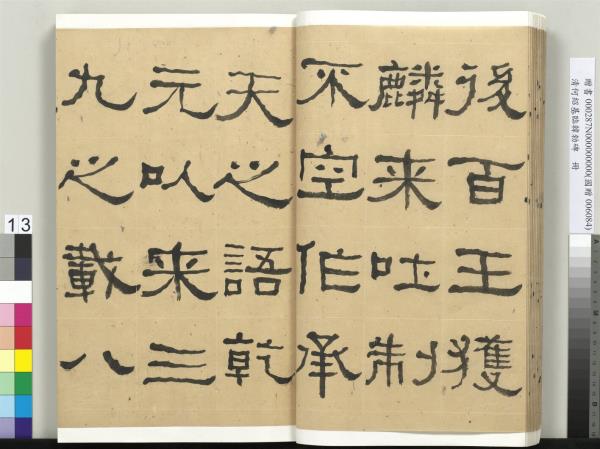 後百王獲
麟来吐制
不空作承
天之語乾
元以来三
九之載八
贈書 000287N000000000(國贈 006084)
清何紹基臨韓勑碑 冊
13